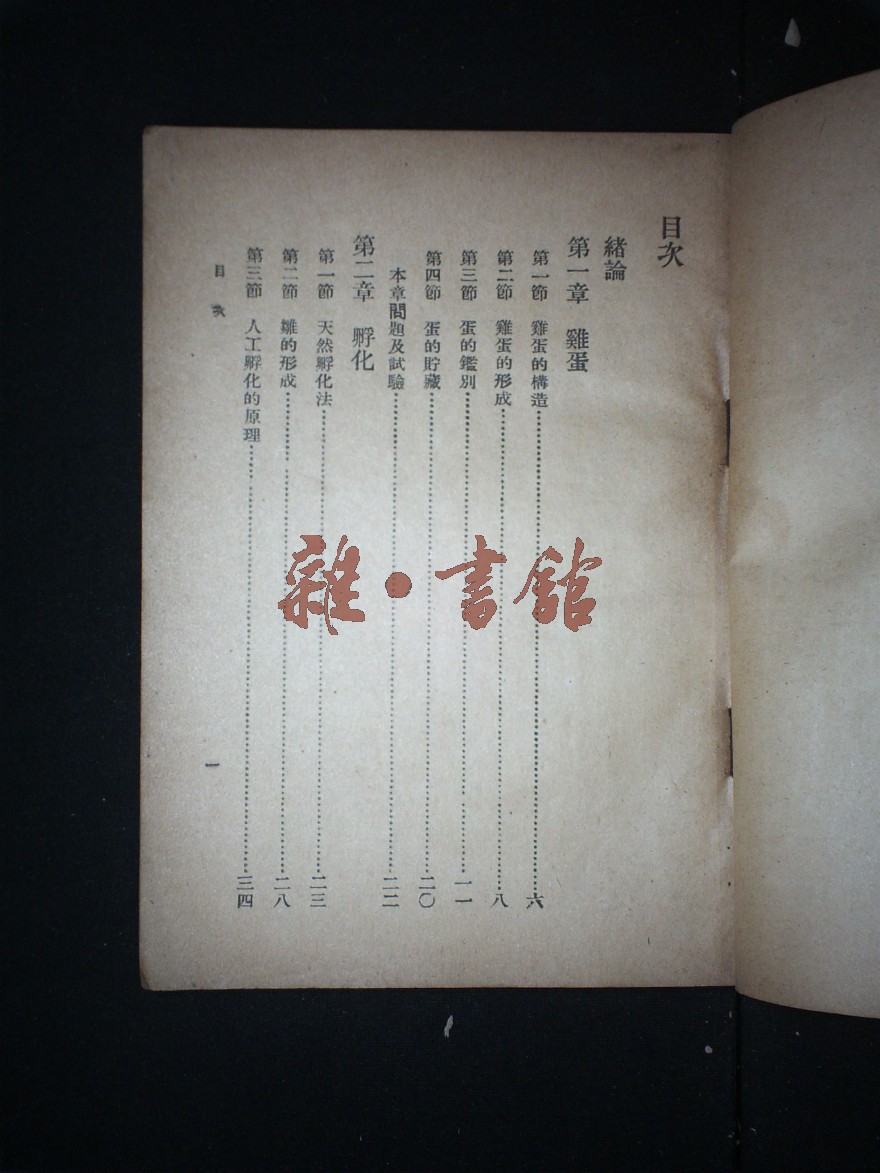 目次
緒論
第一章 雞蛋
第一節 雞蛋的構造……六
第二節 雞蛋的形成……八
第三節 蛋的鑑別……一一
第四節 蛋的貯藏……二〇
本章問題及試驗……二二
第二章 孵化
第一節 天然孵化法……二三
第二節 雛的形成……二八
第三節 人工孵化的原理……三四
目次
一
雜•書館